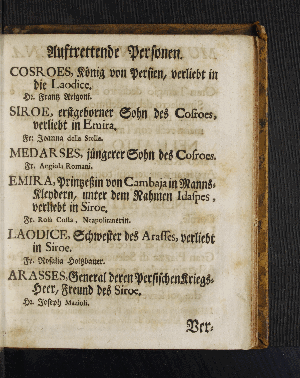 Aufftrettende Personen.
COSROES, König von Persien, verliebt in
die Laodice.
Hr. Frantz Arigoni.
SIROE, erstgeborner Sohn des Cosroes,
verliebt in Emira.
Fr. Joanna della Stella.
MEDARSES, jüngerer Sohn des Cosroes.
Fr. Angiola Romani.
EMIRA, Printzeßin von Cambaja in Manns-
Kleydern, unter dem Nahmen Idaspes,
verliebt in Siroe.
Fr. Rosa Costa, Neapolitanerin.
LAODICE, Schwester des Arasses, verliebt
in Siroe.
Fr. Rosalia Holtzbauer.
ARASSES, General deren Persischen Kriegs-
Heer, Freund des Siroe.
Hr. Joseph
Ver-